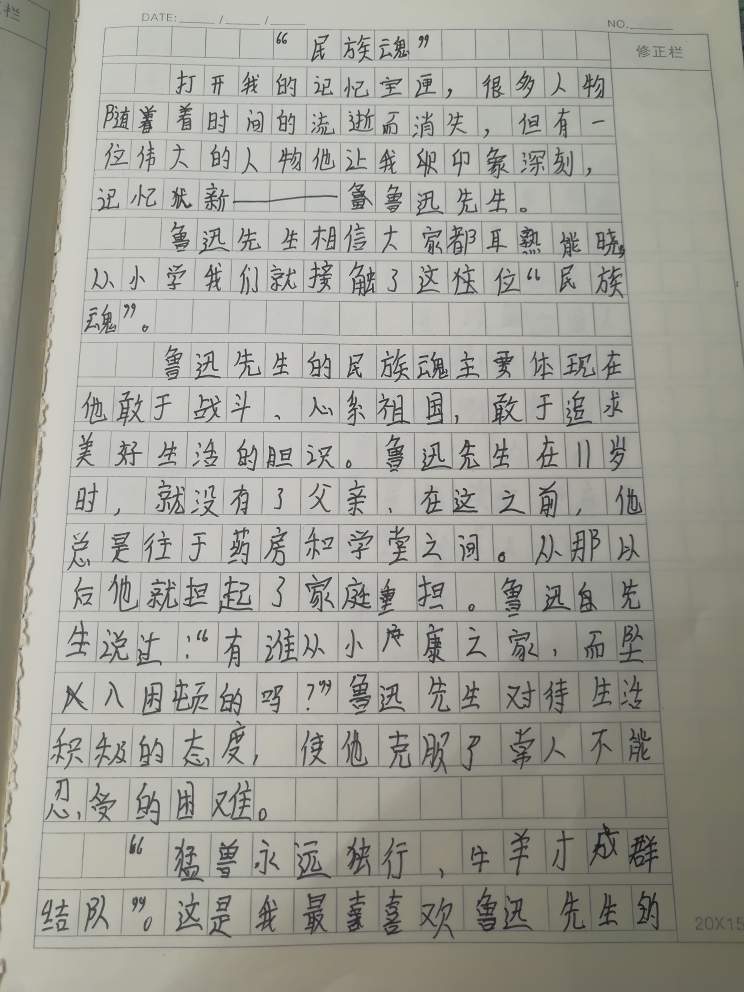 DATE: ____ / ____ / ____
NO. ____
修正栏
“民族魂”
打开我的记忆宝匣，很多人物
随着着时间的流逝而消失，但有一
位伟大的人物他让我印象深刻，
记忆犹新——鲁迅先生。
鲁迅先生相信大家都耳熟能晓，
从小学我们就接触了这位“民族
魂”。
鲁迅先生的民族魂主要体现在
他敢于战斗、心系祖国，敢于追求
美好生活的胆识。鲁迅先生在11岁
时，就没有了父亲、在这之前，他
总是往于药房和学堂之间。从那以
后他就担起了家庭重担。鲁迅先
生说过：“有谁从小康之家、而坠
入困顿的吗？”鲁迅先生对待生活
积极的态度，使他克服了常人不能
忍受的困难。
“猛兽永远独行、牛羊才成群
结队”。这是我最喜欢鲁迅先生的
20X15